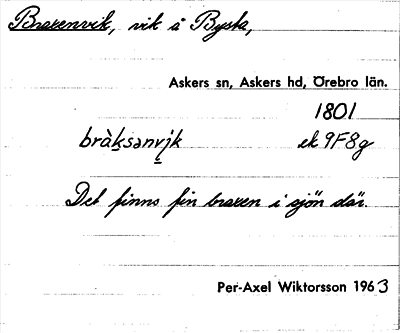 Braxenvik, vik å Bysta,
Askers sn, Askers hd, Örebro län.
1801
bràksənvik ek 9F8g
Det finns fin braxen i sjön där.
Per-Axel Wiktorsson 1963